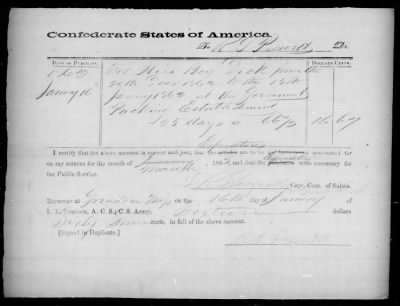 Confederate States of America,
To Dr.
DATE OF PURCHASE.
DOLLARS CENTS.
1862
Jany 16
For Hire Boy Dick from the
20th Dec 1862 to the 15th
January 1863 at the Government
Packing Establishment
25 days @ 66⅔
16 67
I certify that the above account is correct and just; that the articles were accounted for
on my returns for the month of January 186 and the were necessary for
the Public Service.
Capt. Com. of Subsis.
RECEIVED at Grenada Miss on the 16th of January
A. C. S., C. S. Army, Sixteen dollars
Sixty Seven cents, in full of the above account.
[Signed in Duplicate.]